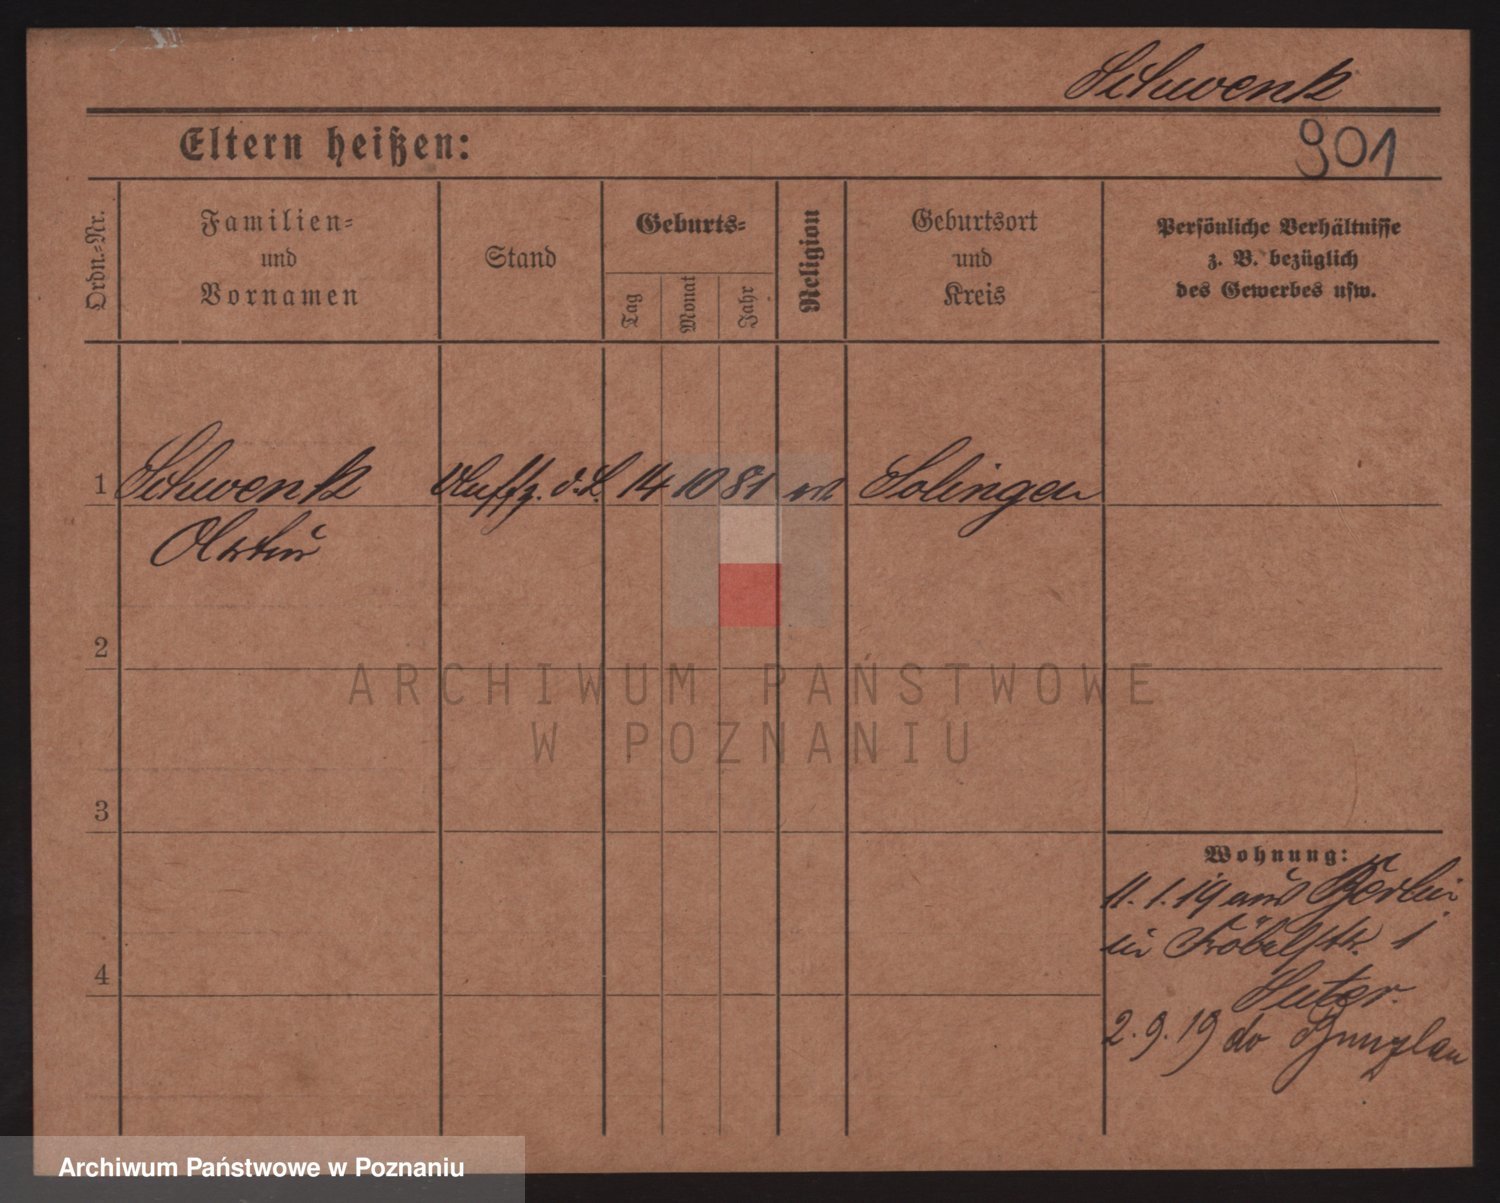 Schwenk
Eltern heißen:
901
Ordn.-Nr.
Familien-
und
Vornamen
Stand
Geburts-
Tag
Monat
Jahr
Religion
Geburtsort
und
Kreis
Persönliche Verhältnisse
z. B. bezüglich
des Gewerbes usw.
1 Schwenk 14 10 81 Solingen
Artur
2
3
4
Wohnung:
11.1.19 aus Berlin
in Fröbelstr. 1
Suter.
2.9.19 do Bunzlau
ARCHIWUM PAŃSTWOWE
W POZNANIU
Archiwum Państwowe w Poznaniu